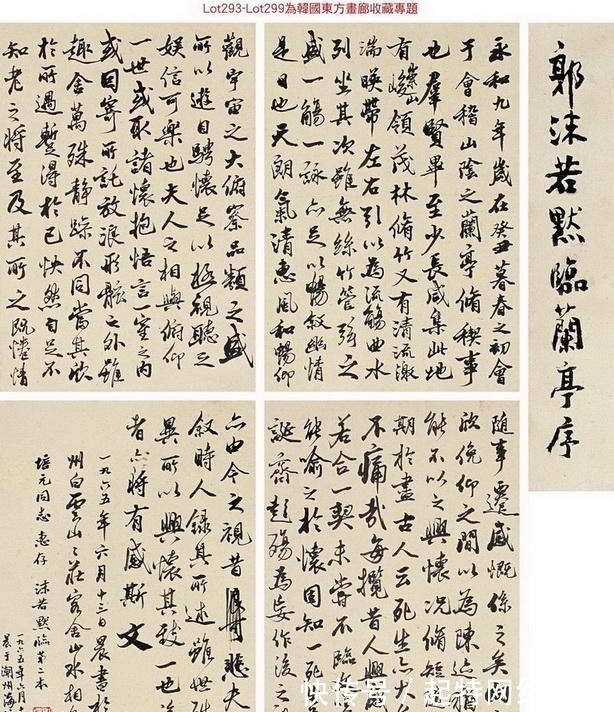 Lot293-Lot299為韓國東方畫廊收藏專題
郭沫若默臨蘭亭序
永和九年歲在癸丑暮春之初會
于會稽山陰之蘭亭脩稧事
也羣賢畢至少長咸集此地
有崇山峻領茂林脩竹又有清流激
湍暎帶左右引以為流觴曲水
列坐其次雖無絲竹管弦之
盛一觴一詠亦足以暢敘幽情
是日也天朗氣清惠風和暢仰
觀宇宙之大俯察品類之盛
所以遊目騁懷足以極視聽之
娛信可樂也夫人之相與俯仰
一世或取諸懷抱悟言一室之內
或因寄所託放浪形骸之外雖
趣舍萬殊靜躁不同當其欣
於所遇暫得於己快然自足不
知老之將至及其所之既惓情
隨事遷感慨係之矣
欣俛仰之間以為陳迹
能不以之興懷況脩短
期於盡古人云死生亦大
不痛哉每攬昔人興
若合一契未嘗不臨
能喻之於懷固知一死
誕齊彭殤為妄作後之
亦由今之視昔悲夫
敘時人錄其所述雖世殊
異所以興懷其致一也
者亦將有感斯文
一九六五年六月十三日晨書於
州白雲山山莊客舍山水相
培元同志惠存 沫若默臨第二本
一九六五年六月
晨于潮州海
快传号/起特网络